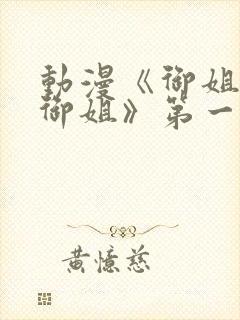 動漫《御姐
御姐》第一
黃憶慈